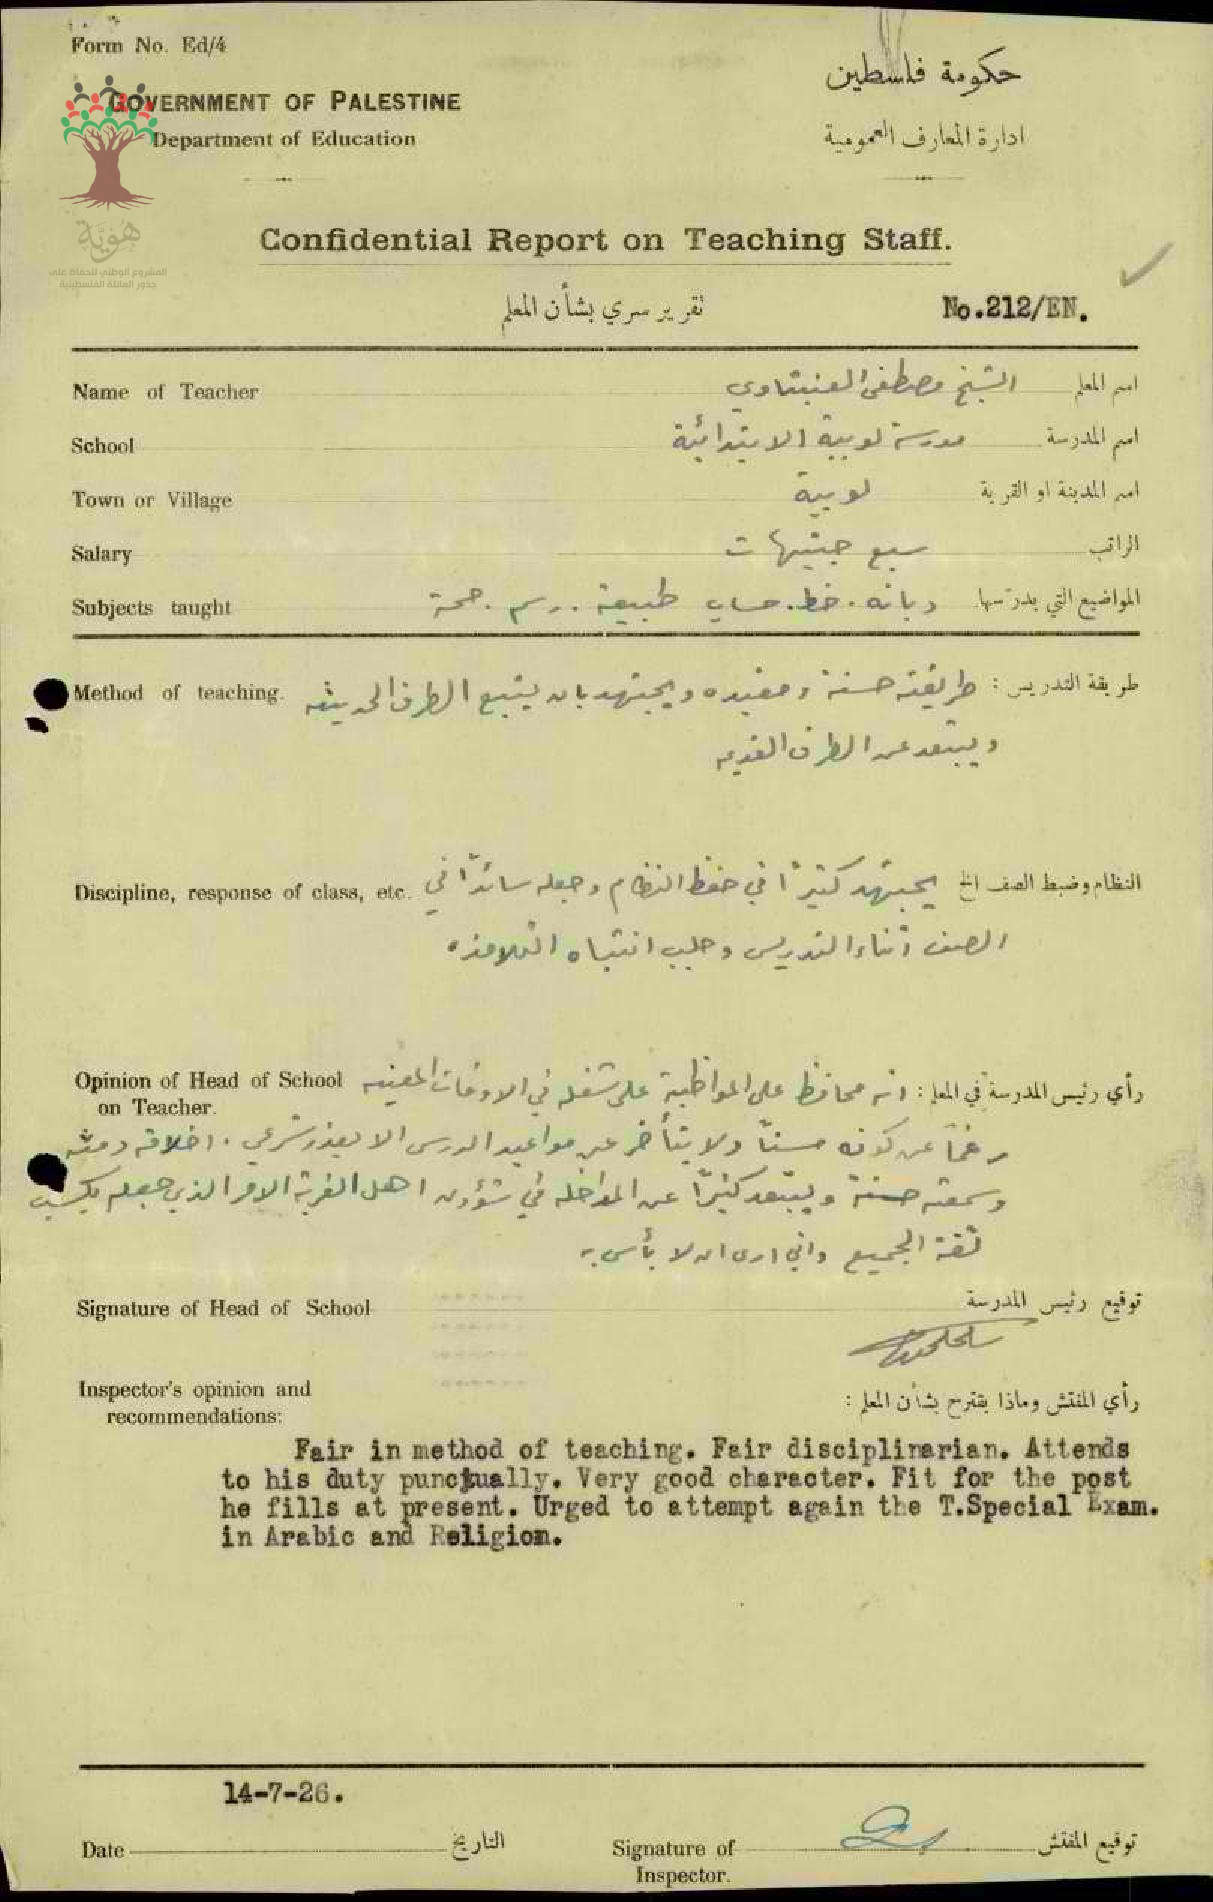 Form No. Ed/4
حكومة فلسطين
GOVERNMENT OF PALESTINE
Department of Education
ادارة المعارف العمومية
هُوِيَّة
المشروع الوطني للحفاظ على
جذور العائلة الفلسطينية
Confidential Report on Teaching Staff.
تقرير سري بشأن المعلم
No.212/EN.
Name of Teacher الشيخ مصطفى العنبتاوي اسم المعلم
School مدرسة لوبية الابتدائية اسم المدرسة
Town or Village لوبية اسم المدينة او القرية
Salary سبع جنيهات الراتب
Subjects taught ديانه . خط . حساب طبيعة . رسم . صحة المواضيع التي يدرّسها
Method of teaching. طريقة التدريس : طريقته حسنة ومفيده ويجتهد بان يتبع الطرق الحديثه
ويبتعد عن الطرق القديمه
Discipline, response of class, etc. النظام وضبط الصف الخ يجتهد كثيرًا في حفظ النظام وجعله سائدًا في
الصف أثناء التدريس وجلب انتباه التلامذه
Opinion of Head of School رأي رئيس المدرسة في المعلم : انه محافظ على المواظبة على شغله في الاوقات المعينه
on Teacher.
رغمًا عن كونه مسنًا ولا يتأخر عن مواعيد الدرس الا بعذر شرعي . اخلاقه دمثه
وسمعته حسنة ويبتعد كثيرًا عن المداخله في شؤون اهل القرية الامر الذي جعله يكسب
ثقة الجميع واني ارى انه لا بأس به
Signature of Head of School توقيع رئيس المدرسة
Inspector's opinion and
recommendations:
رأي المفتش وماذا يقترح بشأن المعلم :
Fair in method of teaching. Fair disciplinarian. Attends
to his duty punctually. Very good character. Fit for the post
he fills at present. Urged to attempt again the T.Special Exam.
in Arabic and Religion.
14-7-26.
Date التاريخ Signature of توقيع المفتش
Inspector.